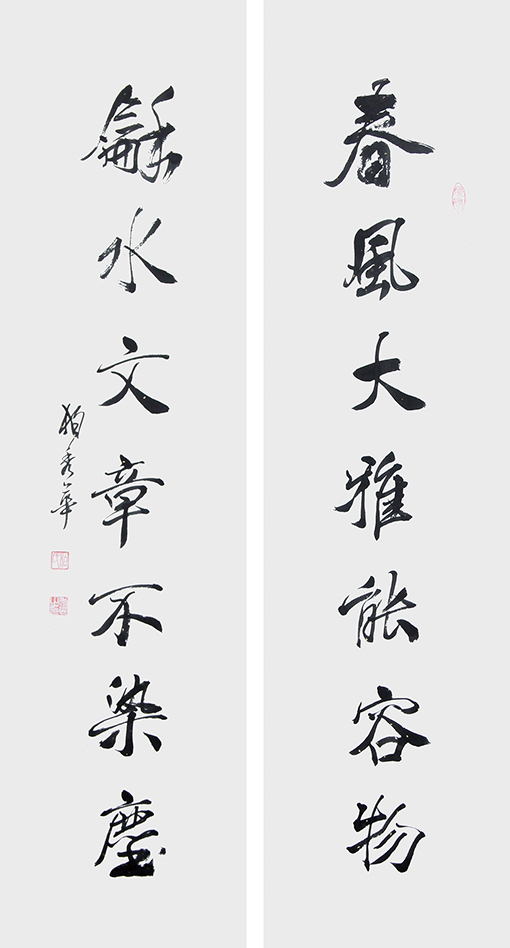 春風大雅能容物
龢水文章不染塵
秀華